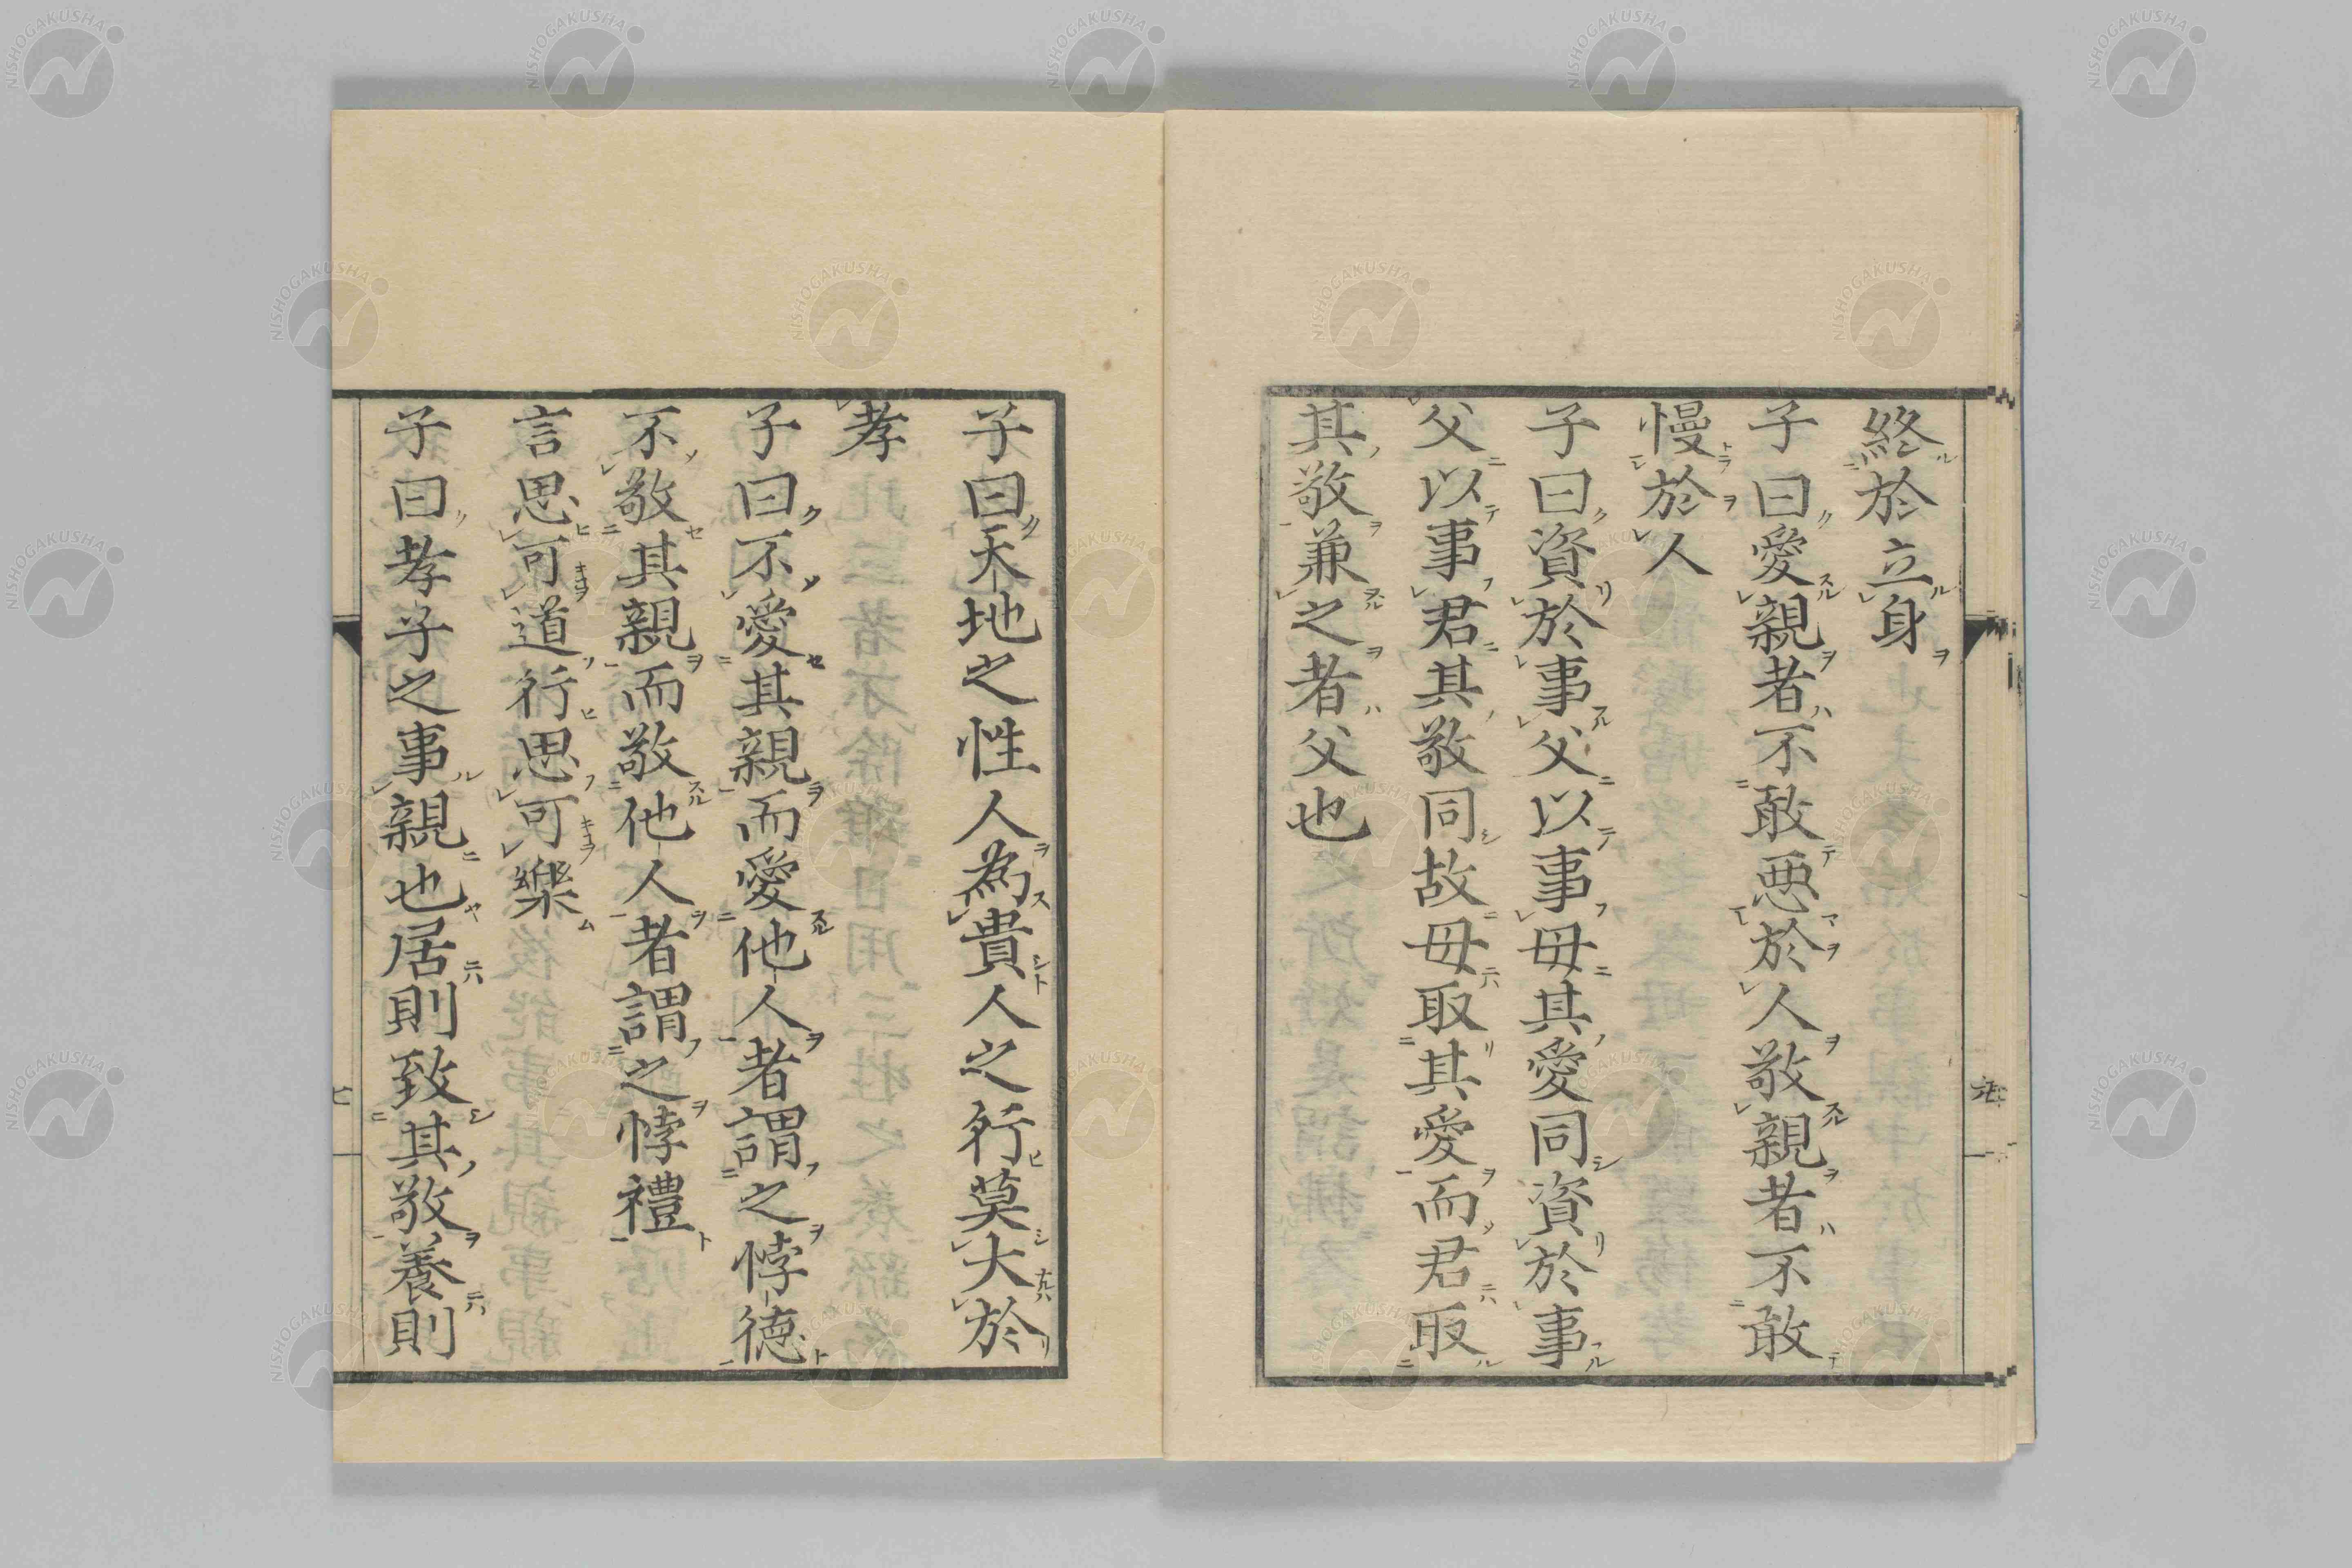 終於立身
子曰愛親者不敢惡於人敬親者不敢
慢於人
子曰資於事父以事母其愛同資於事
父以事君其敬同故母取其愛而君取
其敬兼之者父也
子曰天地之性人為貴人之行莫大於
孝
子曰不愛其親而愛他人者謂之悖德
不敬其親而敬他人者謂之悖禮
言思可道行思可樂
子曰孝子之事親也居則致其敬養則
NISHOGAKUSHA